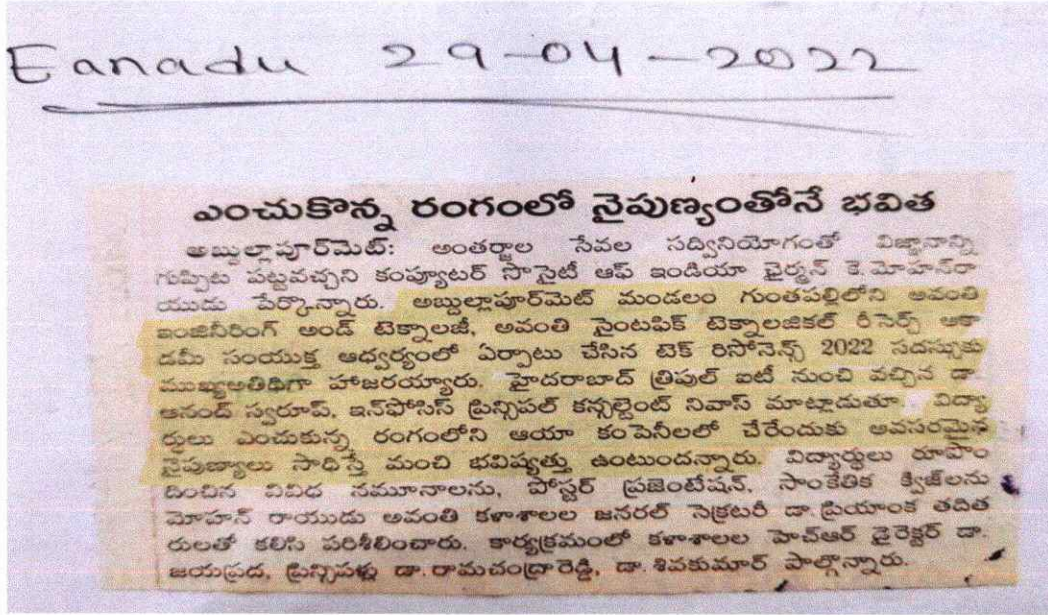 Eanadu 29-04-2022
ఎంచుకొన్న రంగంలో నైపుణ్యంతోనే భవిత
అబ్దుల్లాపూర్‌మెట్: అంతర్జాల సేవల సద్వినియోగంతో విజ్ఞానాన్ని
గుప్పిట పట్టవచ్చని కంప్యూటర్ సొసైటీ ఆప్ ఇండియా ఛైర్మన్ కె.మోహన్‌రా
యుడు పేర్కొన్నారు. అబ్దుల్లాపూర్‌మెట్ మండలం గుంతపల్లిలోని అవంతి
ఇంజినీరింగ్ అండ్ టెక్నాలజీ, అవంతి సైంటపిక్ టెక్నాలజికల్ రీసెర్చ్ అకా
డమీ సంయుక్త ఆధ్వర్యంలో ఏర్పాటు చేసిన టెక్ రిసోనెన్స్ 2022 సదస్సుకు
ముఖ్యఅతిథిగా హాజరయ్యారు. హైదరాబాద్ త్రిపుల్ ఐటీ నుంచి వచ్చిన డా.
ఆనంద్ స్వరూప్, ఇన్‌ఫోసిస్ ప్రిన్సిపల్ కన్సల్టెంట్ నివాస్ మాట్లాడుతూ.. విద్యా
ర్థులు ఎంచుకున్న రంగంలోని ఆయా కంపెనీలలో చేరేందుకు అవసరమైన
నైపుణ్యాలు సాధిస్తే మంచి భవిష్యత్తు ఉంటుందన్నారు. విద్యార్థులు రూపొం
దించిన వివిధ నమూనాలను, పోస్టర్ ప్రజెంటేషన్, సాంకేతిక క్విజ్‌లను
మోహన్ రాయుడు అవంతి కళాశాలల జనరల్ సెక్రటరీ డా.ప్రియాంక తదిత
రులతో కలిసి పరిశీలించారు. కార్యక్రమంలో కళాశాలల హెచ్ఆర్ డైరెక్టర్ డా.
జయప్రద, ప్రిన్సిపళ్లు డా.రామచంద్రారెడ్డి, డా.శివకుమార్ పాల్గొన్నారు.